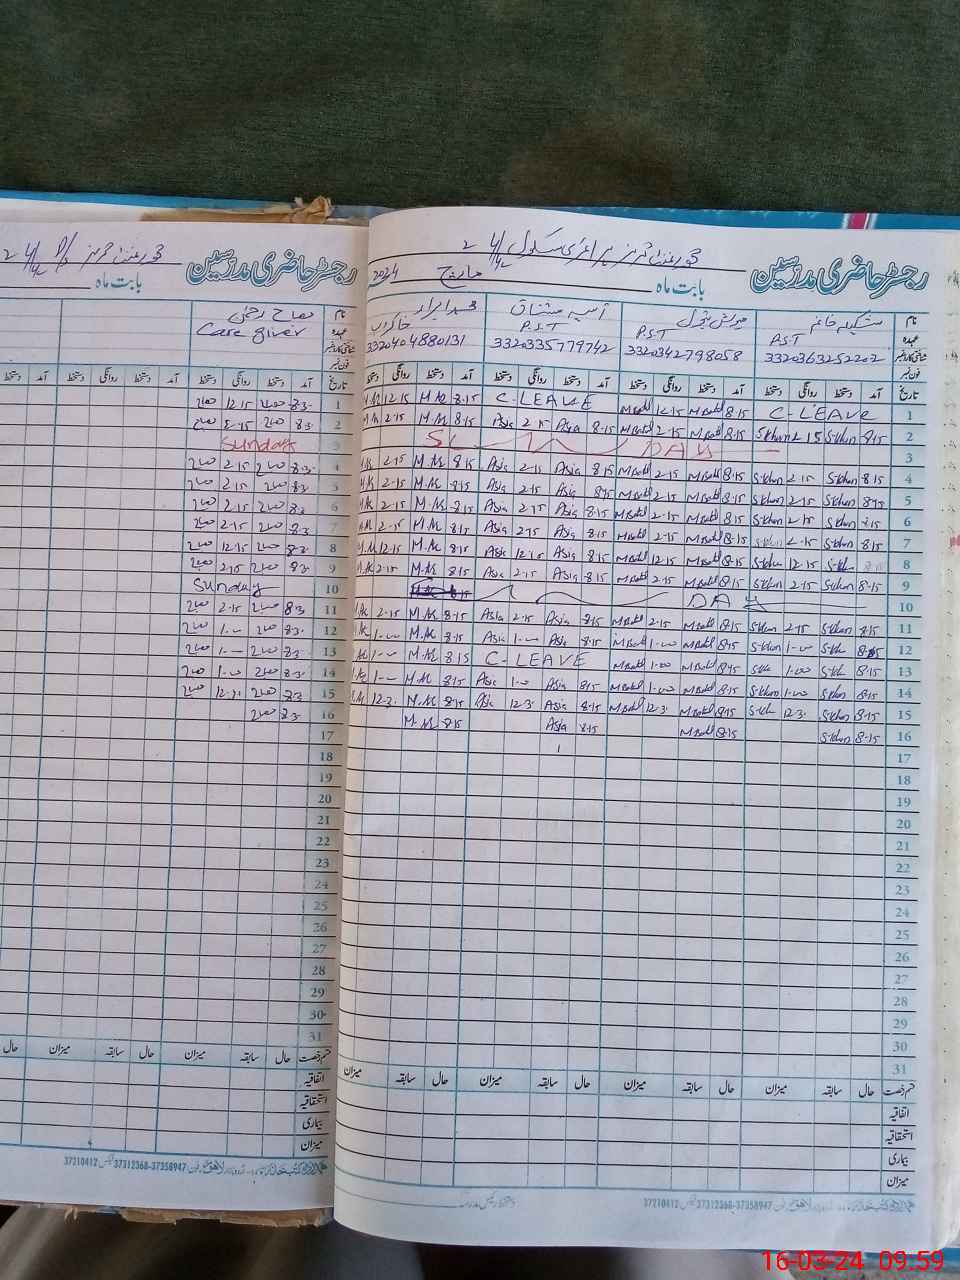 رجسٹر حاضری مدرسین
گورنمنٹ گرلز پرائمری سکول 2 4/L
بابت ماہ مارچ 2024
نام شکیلہ خانم مہوش بتول آسیہ مشتاق
عہدہ P.S.T P.S.T P.S.T خاکروب
شناختی کارڈ نمبر 3320363252202 3320342798058 3320335779742 3320404880131
فون نمبر
تاریخ آمد دستخط روانگی دستخط آمد دستخط روانگی دستخط آمد دستخط روانگی دستخط آمد دستخط
1 C-LEAVE 8-15 M Batol 12-15 M Batol C-LEAVE 8-15 M.M 12-15
2 8-15 S khan 2-15 S khan 8-15 M Batol 2-15 M Batol 8-15 Asia 2-15 Asia 8-15 M.M 2-15
3 DAY
4 8-15 S-khan 2-15 S-khan 8-15 M Batol 2-15 M Batol 8-15 Asia 2-15 Asia 8-15 M.M 2-15
5 S-khan 2-15 S-khan 8-15 M Batol 2-15 M Batol Asia 2-15 Asia 8-15 M.M 2-15
6 8-15 S-khan 2-15 S-khan 8-15 M Batol 2-15 M Batol 8-15 Asia 2-15 Asia 8-15 M.M 2-15
7 8-15 S-khan 2-15 S-khan 8-15 M Batol 2-15 M Batol 8-15 Asia 2-15 Asia 8-15 M.M 2-15
8 S-khan 12-15 S-khan 8-15 M Batol 12-15 M Batol 8-15 Asia 12-15 Asia 8-15 M.M 12-15
9 8-15 S-khan 2-15 S-khan 8-15 M Batol 2-15 M Batol 8-15 Asia 2-15 Asia 8-15 M.M 2-15
10 DAY 8-15
11 8-15 S-khan 2-15 S-khan 8-15 M Batol 2-15 M Batol 8-15 Asia 2-15 Asia 8-15 M.M 2-15
12 S-kh 1-00 S-khan 8-15 M Batol 1-00 M Batol 8-15 Asia 1-00 Asia 8-15 M.M 1-00
13 8-15 S-kh 1-00 S-kh 8-15 M Batol 1-00 M Batol C-LEAVE 8-15 M.M 1-00
14 8-15 S-khan 1-00 S-khan 8-15 M Batol 1-00 M Batol 8-15 Asia 1-00 Asia 8-15 M.M 1-00
15 8-15 S-khan 12-3. S-kh 8-15 M Batol 12-3. M Batol 8-15 Asia 12-3. Asia 8-15 M.M 12-3.
16 8-15 S-khan 8-15 M Batol 8-15 Asia 8-15 M.M
17
18
19
20
21
22
23
24
25
26
27
28
29
30
31
قسم رخصت حال سابقہ میزان حال سابقہ میزان حال سابقہ میزان حال سابقہ میزان
اتفاقیہ
استحقاقیہ
بیماری
میزان
37210412 37312368-37358947
رجسٹر حاضری مدرسین
گورنمنٹ گرلز P/S 2 4/L
بابت ماہ
نام
عہدہ Care giver
شناختی کارڈ نمبر
فون نمبر
تاریخ آمد دستخط روانگی دستخط آمد دستخط روانگی دستخط آمد دستخط
1 8-3. 12-15
2 8-3. 2-15
3 Sunday
4 8-3. 2-15
5 8-3. 2-15
6 8-3. 2-15
7 8-3. 2-15
8 8-3. 12-15
9 8-3. 2-15
10 Sunday
11 8-3. 2-15
12 8-3. 1-00
13 8-3. 1-00
14 8-3. 1-00
15 8-3.
16 8-3.
17
18
19
20
21
22
23
24
25
26
27
28
29
30
31
قسم رخصت حال سابقہ میزان حال سابقہ میزان حال
اتفاقیہ
استحقاقیہ
بیماری
میزان
37210412 37312368-37358947
16-03-24 09:59